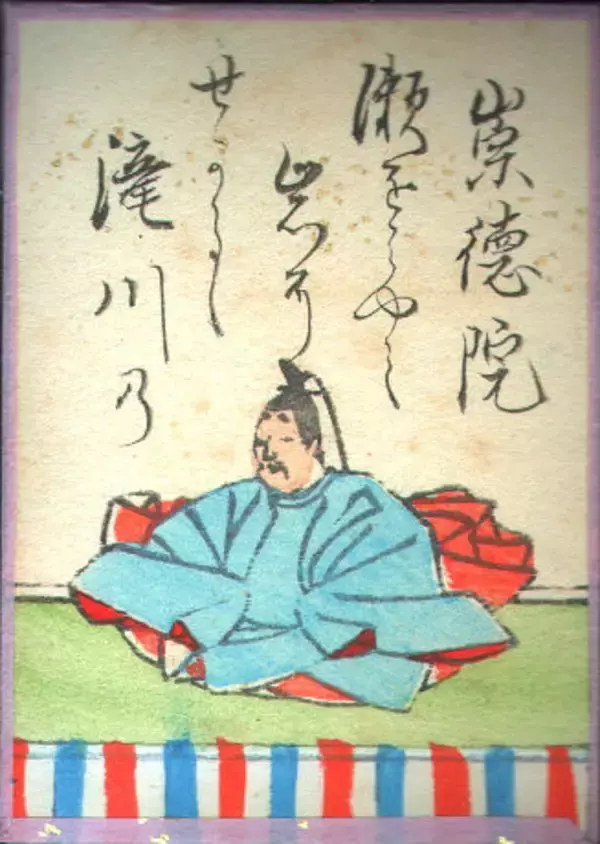 崇徳院
瀬をはやみ
岩に
せかるゝ
滝川の